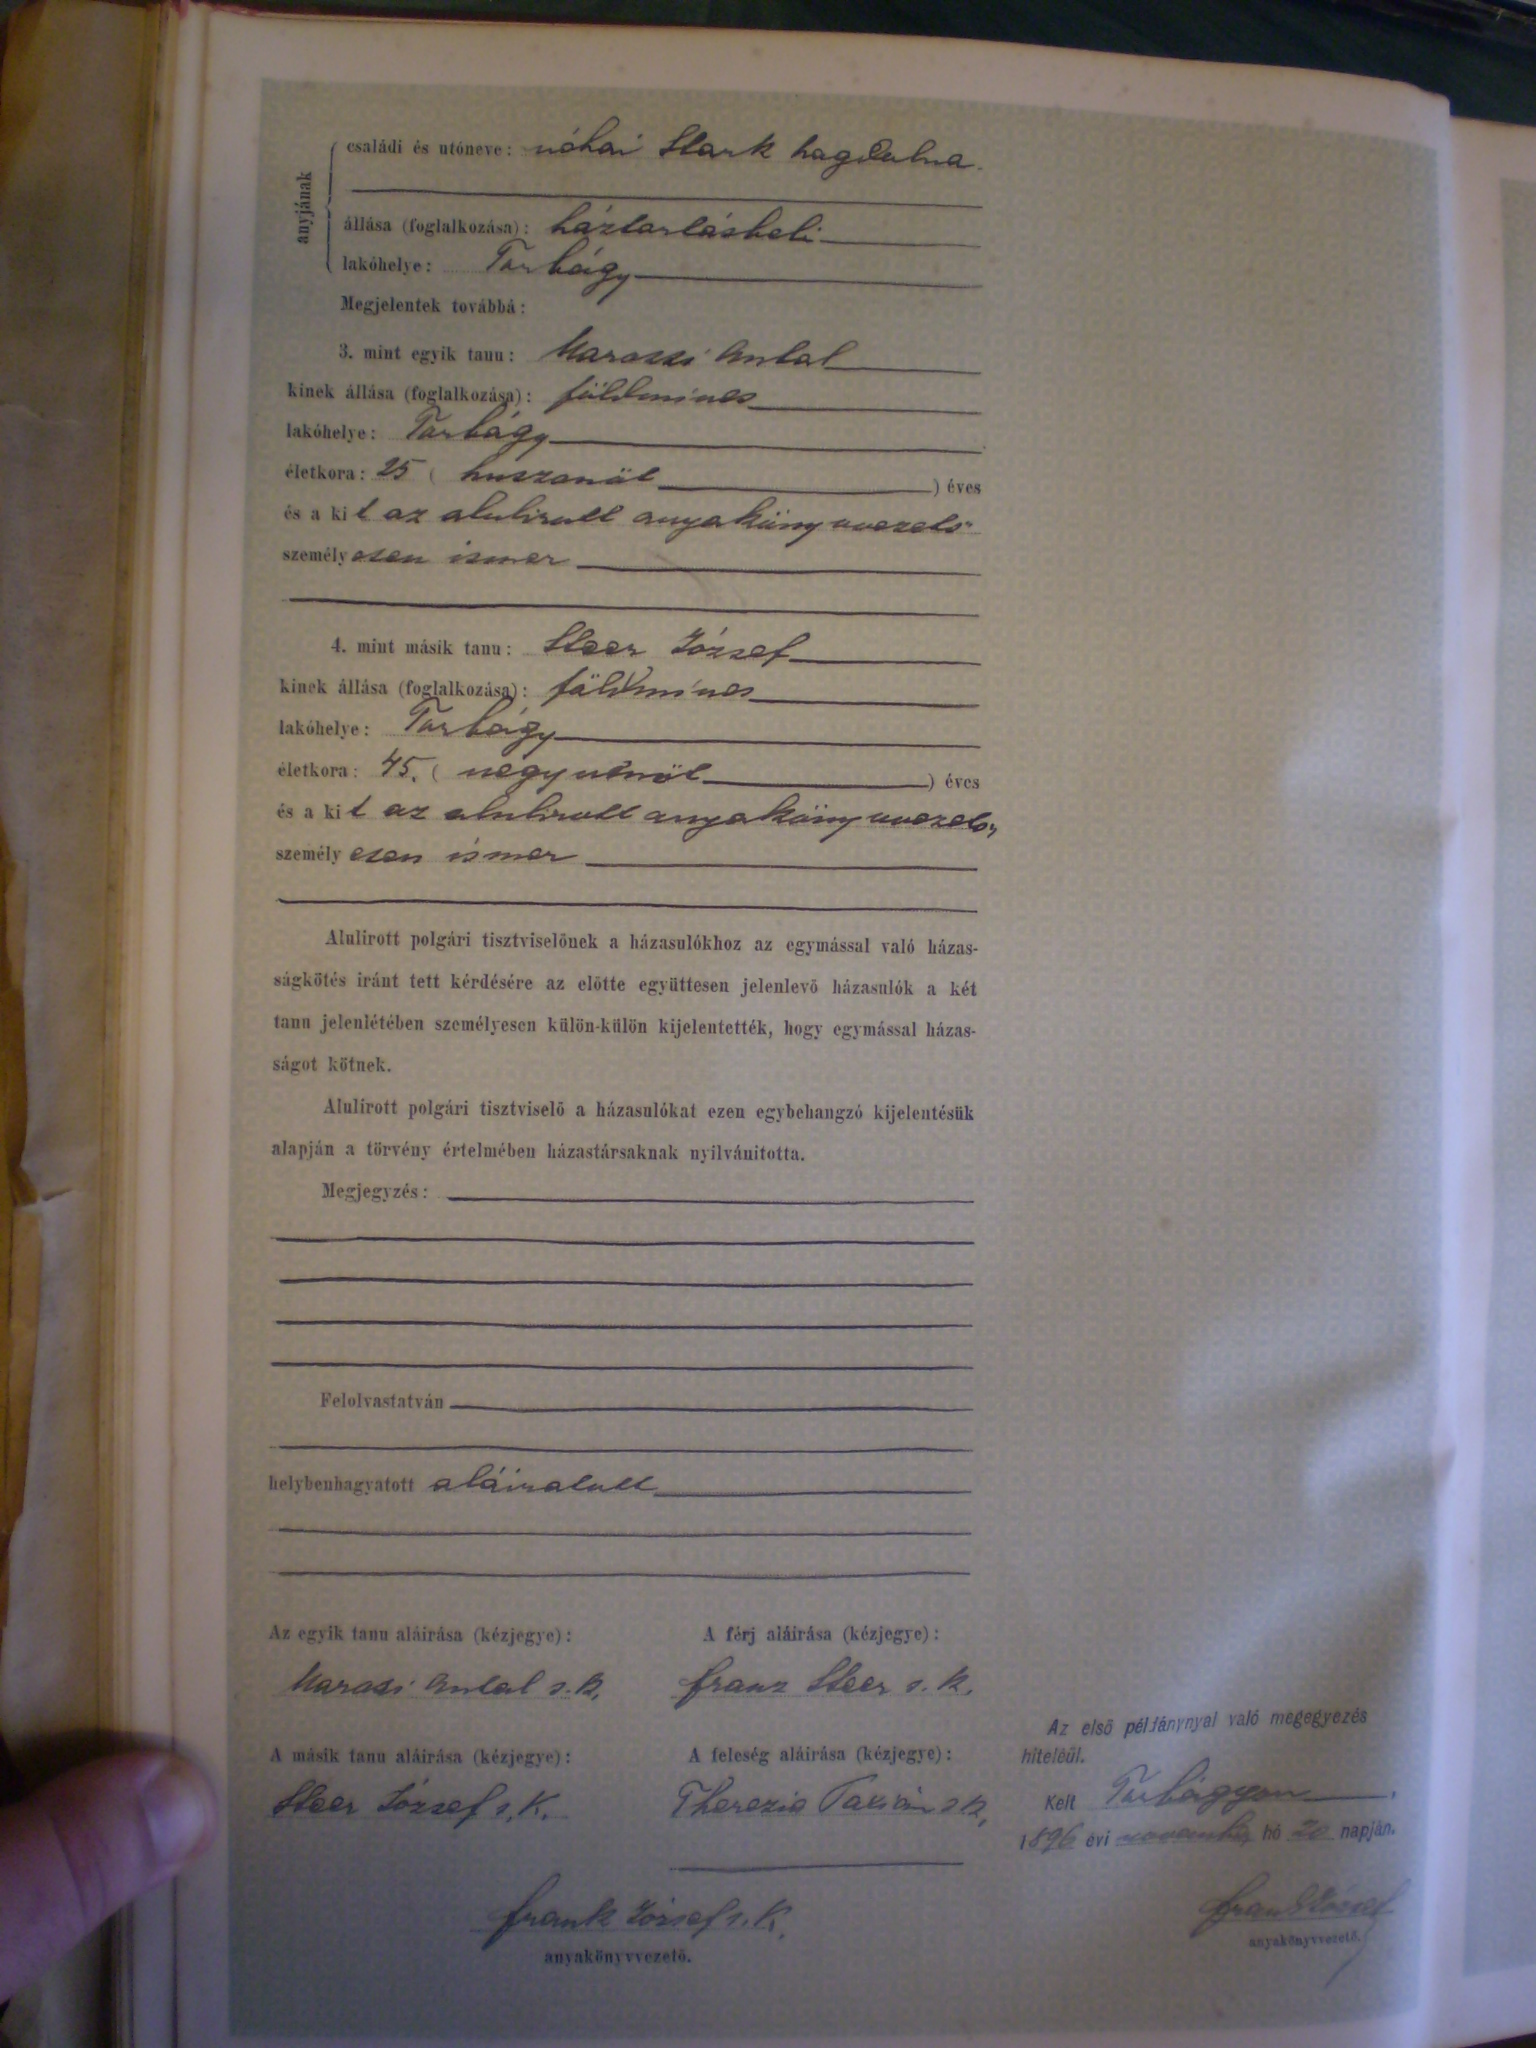 anyjának
családi és utóneve: néhai Stark Magdolna
állása (foglalkozása): háztartásbeli
lakóhelye: Torbágy
Megjelentek továbbá:
3. mint egyik tanu: Marossi Antal
kinek állása (foglalkozása): földmíves
lakóhelye: Torbágy
életkora: 25 ( huszonöt ) éves
és a kit az alulirott anyakönyvvezető
személyesen ismer
4. mint másik tanu: Steer József
kinek állása (foglalkozása): földmíves
lakóhelye: Torbágy
életkora: 45. ( negyvenöt ) éves
és a kit az alulirott anyakönyvvezető
személyesen ismer
Alulirott polgári tisztviselőnek a házasulókhoz az egymással való házas-
ságkötés iránt tett kérdésére az előtte együttesen jelenlevő házasulók a két
tanu jelenlétében személyesen külön-külön kijelentették, hogy egymással házas-
ságot kötnek.
Alulirott polgári tisztviselő a házasulókat ezen egybehangzó kijelentésük
alapján a törvény értelmében házastársaknak nyilvánitotta.
Megjegyzés:
Felolvastatván
helybenhagyatott aláiratott
Az egyik tanu aláirása (kézjegye): A férj aláirása (kézjegye):
Marossi Antal s. k. Franz Steer s. k.
A másik tanu aláirása (kézjegye): A feleség aláirása (kézjegye):
Steer József s. k. Therezia s k.
Frank József s. k.
anyakönyvvezető.
Az első példánynyal való megegyezés
hiteléül.
Kelt Torbágyon,
1896 évi november hó 20 napján.
Frank József
anyakönyvvezető.